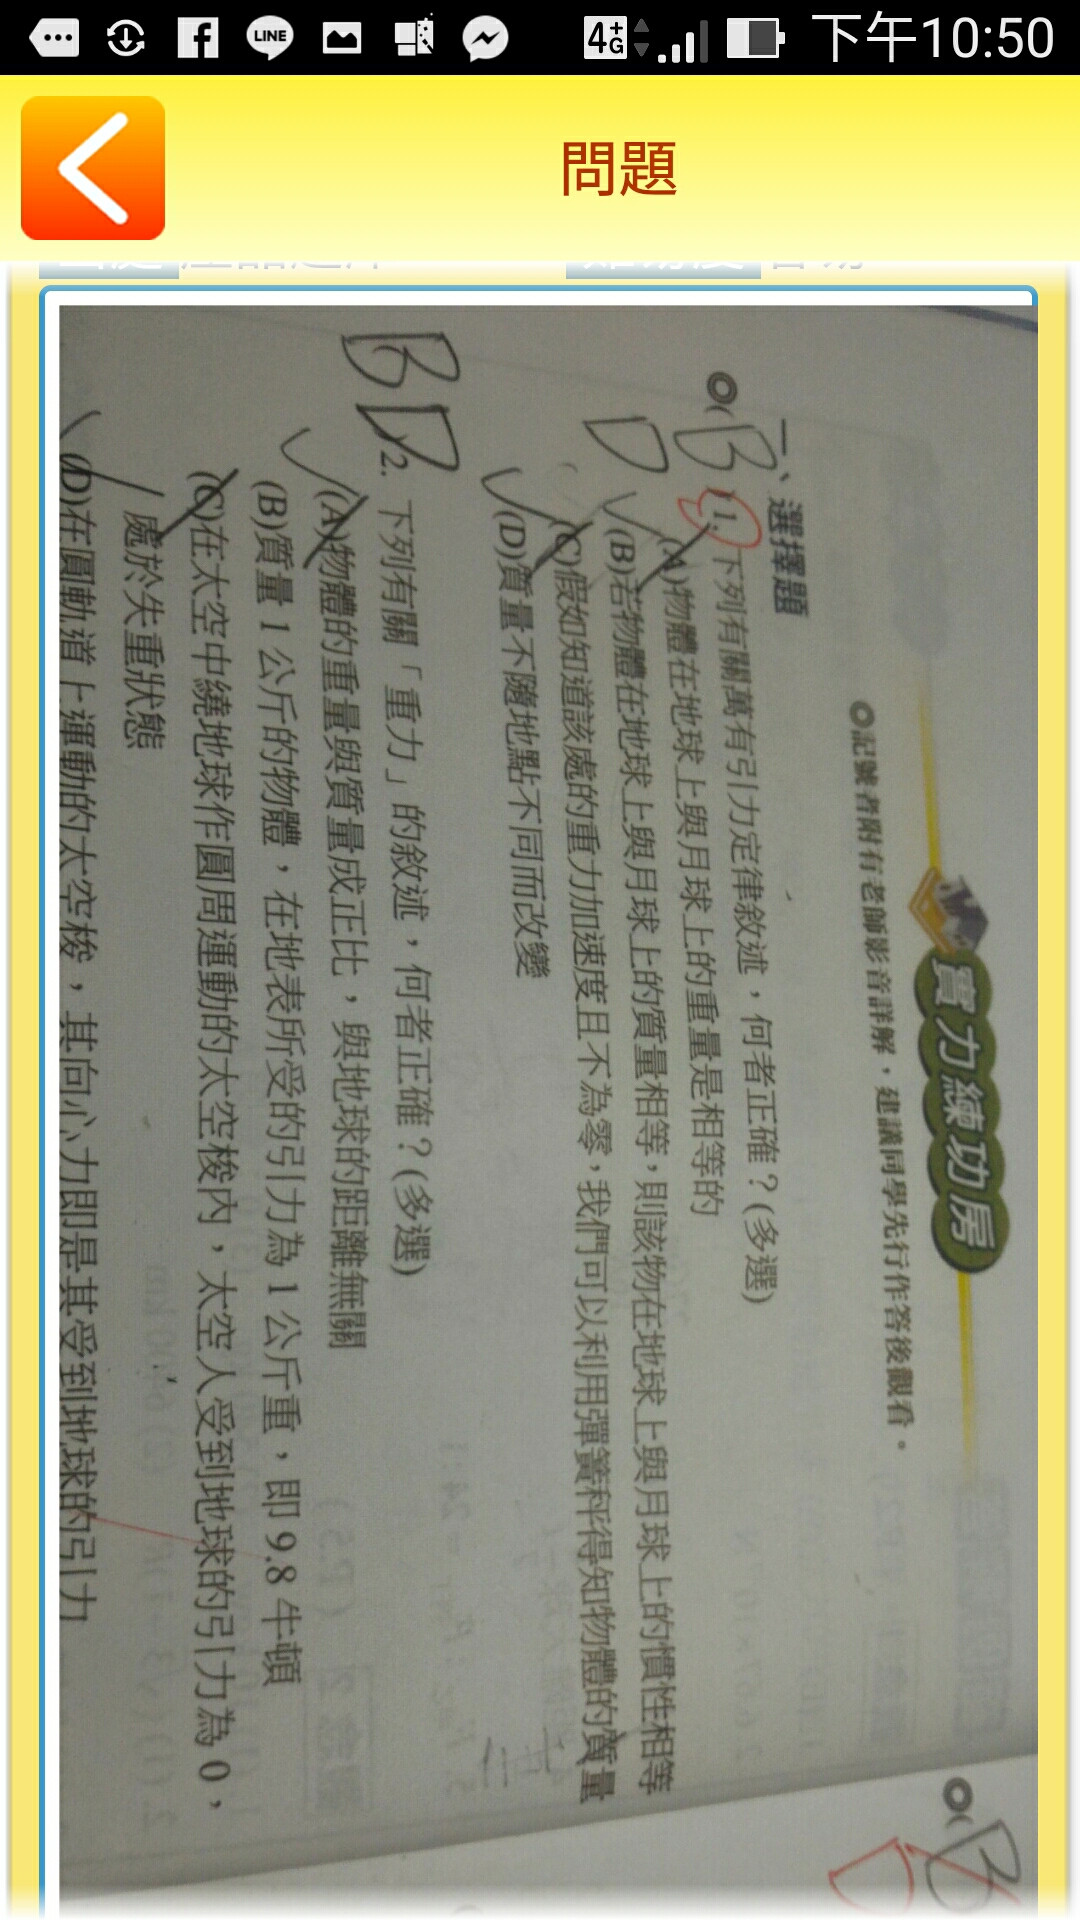 下午10:50
LINE
4G+
問題
實力練功房
◎記號者附有老師影音詳解，建議同學先行作答後觀看。
一、選擇題
◎(BD) 1. 下列有關萬有引力定律敘述，何者正確？(多選)
(A)物體在地球上與月球上的重量是相等的
(B)若物體在地球上與月球上的質量相等，則該物在地球上與月球上的慣性相等
(C)假如知道該處的重力加速度且不為零，我們可以利用彈簧秤得知物體的質量
(D)質量不隨地點不同而改變
BD 2. 下列有關「重力」的敘述，何者正確？(多選)
(A)物體的重量與質量成正比，與地球的距離無關
(B)質量1公斤的物體，在地表所受的引力為1公斤重，即9.8牛頓
(C)在太空中繞地球作圓周運動的太空梭內，太空人受到地球的引力為0，
處於失重狀態
(D)在圓軌道上運動的太空梭，其向心力即是其受到地球的引力
◎(B